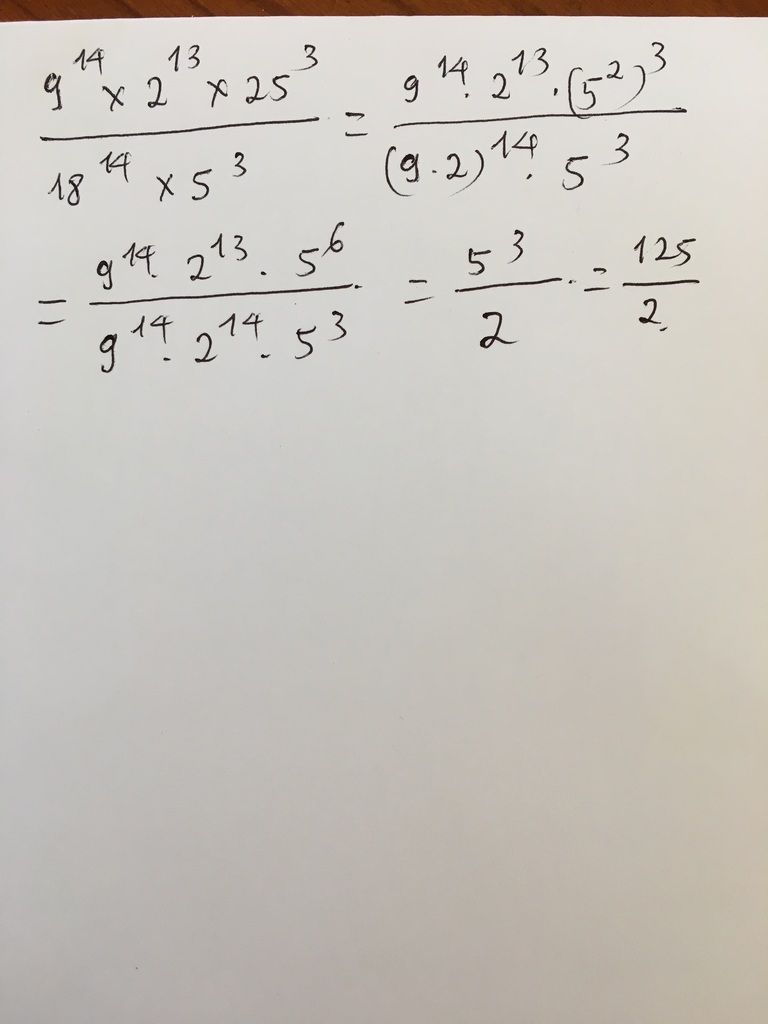 9^14 × 2^13 × 25^3 / 18^14 × 5^3 = 9^14 · 2^13 · (5^2)^3 / (9 · 2)^14 · 5^3
= 9^14 · 2^13 · 5^6 / 9^14 · 2^14 · 5^3 = 5^3 / 2 = 125 / 2